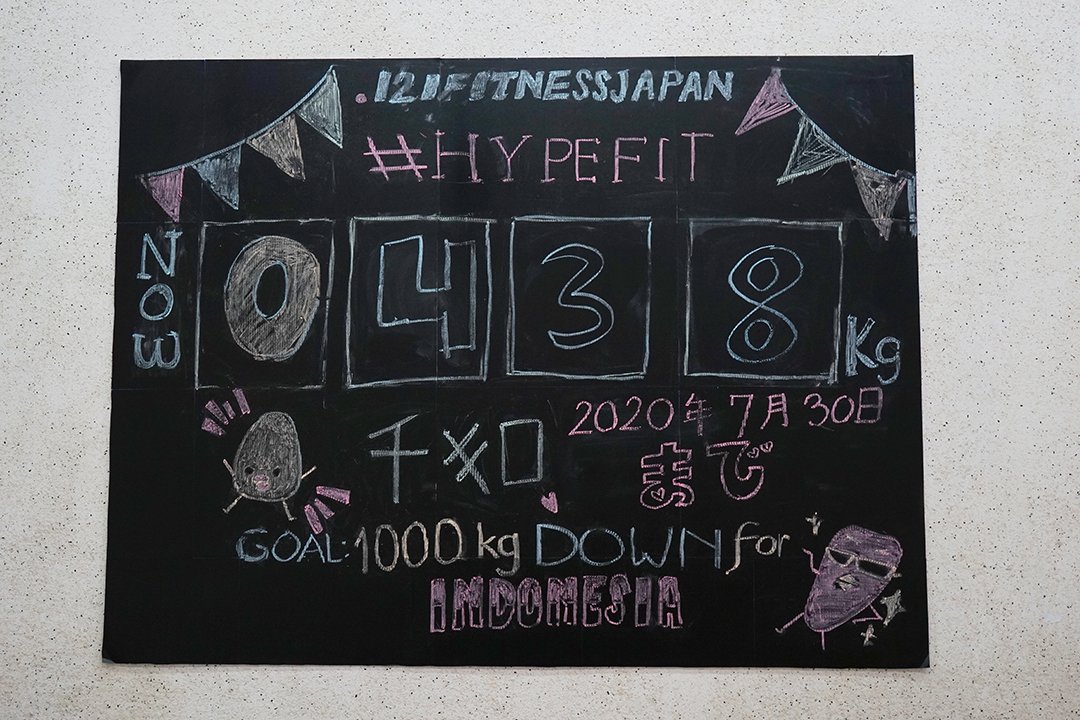 .121FITNESSJAPAN
#HYPEFIT
NOW 0438 Kg
千キロ 2020年7月30日
まで
GOAL: 1000 kg DOWN for
INDONESIA